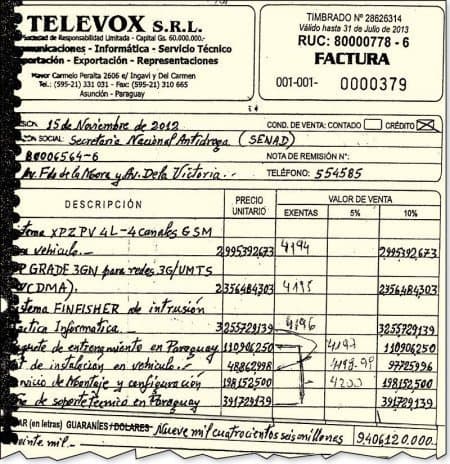 TELEVOX S.R.L.
Sociedad de Responsabilidad Limitada - Capital Gs. 60.000.000.-
municaciones - Informática - Servicio Técnico
portación - Exportación - Representaciones
Mayor Carmelo Peralta 2606 e/ Ingavi y Del Carmen
Tel.: (595-21) 331 031 - Fax: (595-21) 310 665
Asunción - Paraguay
TIMBRADO Nº 28626314
Válido hasta 31 de Julio de 2013
RUC: 80000778 - 6
FACTURA
001-001- 0000379
15 de Noviembre de 2012 COND. DE VENTA: CONTADO CRÉDITO X
SOCIAL: Secretaria Nacional Antidroga (SENAD)
80006564-6 NOTA DE REMISIÓN Nº:
Av. Fdo de la Mora y Av. De la Victoria. TELÉFONO: 554585
DESCRIPCIÓN PRECIO UNITARIO VALOR DE VENTA
EXENTAS 5% 10%
tema XPZPV 4L-4 canales GSM
vehiculo.- 2,995392,673 4194 2,995392,673
GRADE 3GN para redes 3G/UMTS
CDMA). 2,356484,303 4195 2,356484,303
tema FINFISHER de intrusión
tica Informatica.- 3255729,139 4196 3255729,139
quete de entrenamiento en Paraguay 110,906,250 4197 110,906,250
de instalacion en vehiculo.- 48,862,998 97,725,996
vicio de Montaje y configuración 198,152,500 4200 198,152,500
de soporte tecnico en Paraguay 391,729,139 391,729,139
(en letras) GUARANÍES / DOLARES Nueve mil cuatrocientos seis millones 9,406,120.000.
veinte mil.-